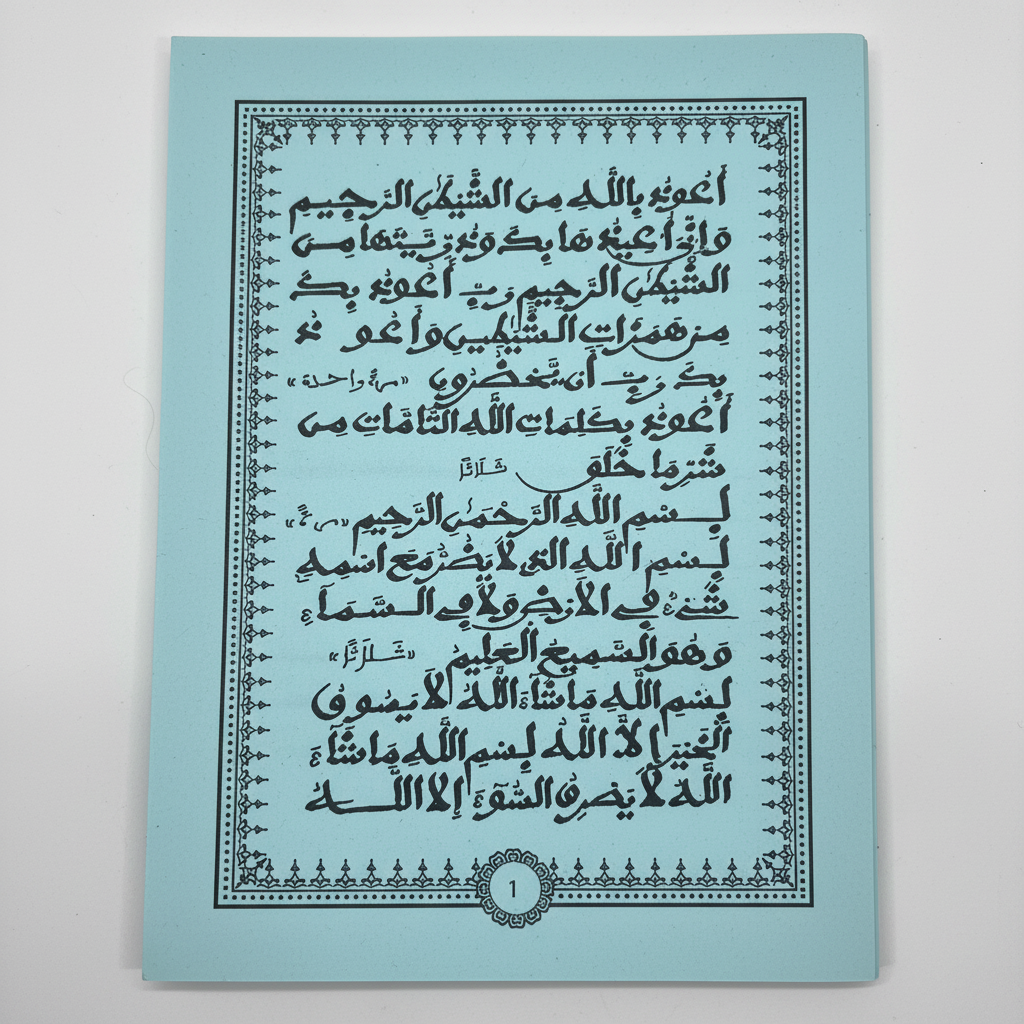 أَعُوذُ بِاللَّهِ مِنَ الشَّيْطَٰنِ الرَّجِيمِ
وَإِنِّي أُعِيذُهَا بِكَ وَذُرِّيَّتَهَا مِنَ
الشَّيْطَٰنِ الرَّجِيمِ رَبِّ أَعُوذُ بِكَ
مِنْ هَمَزَاتِ الشَّيَٰطِينِ وَأَعُوذُ
بِكَ رَبِّ أَنْ يَّحْضُرُونِ «مرة واحدة»
أَعُوذُ بِكَلِمَاتِ اللَّهِ التَّامَّاتِ مِن
شَرِّ مَا خَلَقَ ثَلَاثًا
بِسْمِ اللَّهِ الرَّحْمَٰنِ الرَّحِيمِ «مرةً»
بِسْمِ اللَّهِ الذِي لَا يَضُرُّ مَعَ اسْمِهِ
شَيْءٌ فِي الْأَرْضِ وَلَا فِي السَّمَآءِ
وَهُوَ السَّمِيعُ الْعَلِيمُ «ثَلَاثًا»
بِسْمِ اللَّهِ مَا شَآءَ اللَّهُ لَا يَسُوقُ
الْخَيْرَ إِلَّا اللَّهُ بِسْمِ اللَّهِ مَا شَآءَ
اللَّهُ لَا يَصْرِفُ السُّوٓءَ إِلَّا اللَّهُ
1